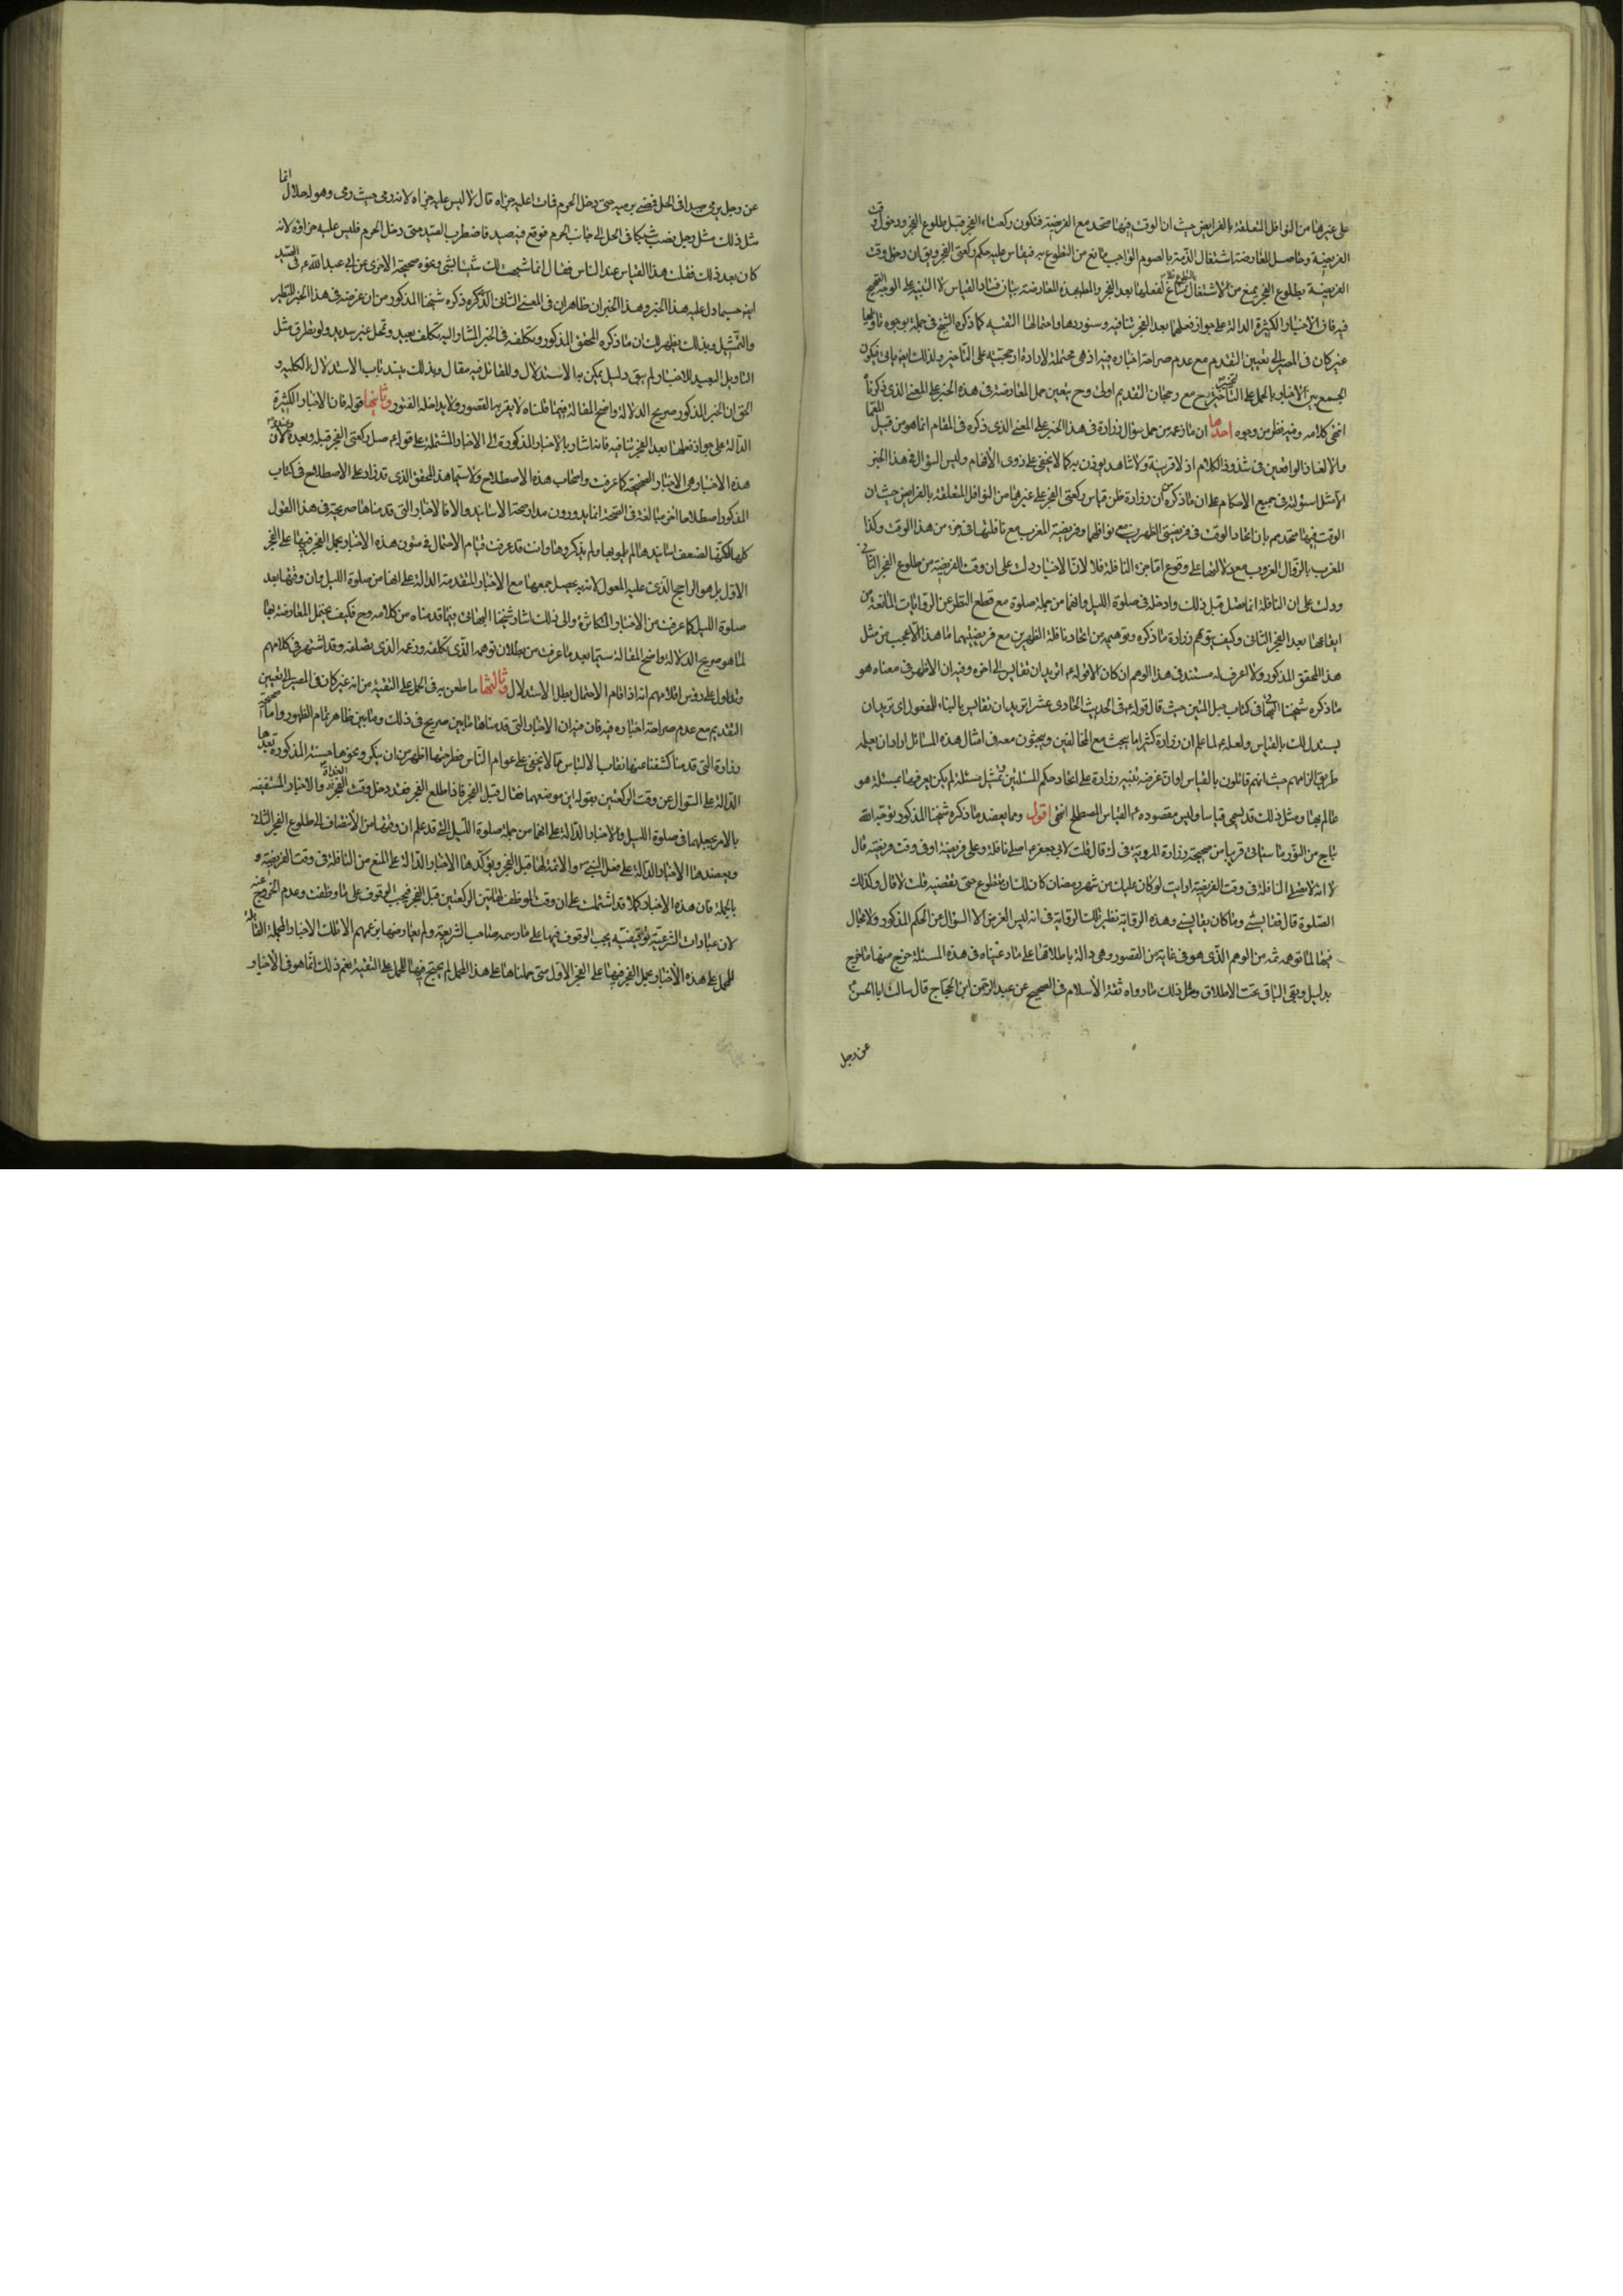 على غيرها من النوافل المتعلقة بالفرايض حيث ان الوقت فيها متحد مع الفريضة فتكون ركعتاء الفجر قبل طلوع الفجر ودخول وقت
الفريضة وحاصل المعارضة اشتغال الذمة بالصوم الواجب مانع من التطوع به فيقاس عليه حكم ركعتي الفجر ويق ان دخل وقت
الفريضة بطلوع الفجر يمنع من الاشتغال بالتطوع فلا مساغ لفعلها بعد الفجر والمطلب هذه المعارضة بيان فساد القياس لا التنبيه على الوجه الصحيح
فيه فان الاخبار الكثيرة الدالة على جواز فعلهما بعد الفجر تنافيه وسنوردها واحتمالها التقيه كما ذكره الشيخ في جملة وجوه تاويلها
غير كان في المصير الى تعيين التقديم مع عدم صراحة اخباره فيه اذ هي محتملة لارادة ارجحيته على التاخير ولذلك ايضا ياتي فيكون
الجمع بين الاخبار بالحمل على التاخير مرجح مع رجحان التقديم اولى وح يتعين حمل المعارضة في هذه الخبر على المعنى الذي ذكرناه
انتهى كلامه وفيه نظر من وجوه احدها ان ما زعمه من حمل سؤال زرارة في هذا الخبر على المعنى الذي ذكره في المقام انما هو من قبيل المعما
والالغاز الواقعين في شذوذ الكلام اذ لا قرينة ولا شاهد يوذن به كما لا يخفى على ذوي الأفهام وليس السؤال في هذا الخبر
الا مثل سؤاله في جميع الاحكام على ان ما ذكره من ان زرارة ظن قياس ركعتي الفجر على غيرها من النوافل المتعلقة بالفرايض حيث ان
الوقت فيها متحد مم بان اتحاد الوقت في فريضتي الظهرين مع نوافلهما وفريضة المغرب مع نافلتها في جزء من هذا الوقت وكذا
المغرب بالزوال الغروب مع دلالتها على وقوع اما جزء النافلة فلا لان الاخبار دلت على ان وقت الفريضة من طلوع الفجر الثاني
ودلت على ان النافلة انما تصل قبل ذلك وادخله في صلوة الليل وانهما من جملة صلوة مع قطع النظر عن الروايات المانعة من
ايقاعها بعد الفجر الثاني وكيف يتوهم زرارة ما ذكره وتوهيمه من اتحاد نافلة الظهرين مع فريضتيهما ما هذا الا عجيب من مثل
هذا المحقق المذكور ولا اعرف له مستند في هذا الوهم ان كان الا قوله ع اتريد ان تقايس الى اخره وفيه ان الاظهر في معناه هو
ما ذكره شيخنا البهائي في كتاب حبل المتين حيث قال قوله ع في الحديث الحادي عشر اتريد ان تقايس بالبناء للمفعول اي تريد ان
يستدل لك بالقياس ولعله ع لما علم ان زرارة كثيرا ما يبحث مع المخالفين ويبحثون معه في امثال هذه المسائل اراد ان يعلمه
طريق الزامهم حيث انهم قائلون بالقياس او ان غرضه تنبيه زرارة على اتحاد حكم المسئلتين وتمثيل مسئلة لم يكن يعرفها بمسئلة هو
عالم بها ومثل ذلك قد يسمى قياسا وليس مقصوده ع القياس المصطلح انتهى اقول ومما يعضد ما ذكره شيخنا المذكور توجه الله
بتاج من النور ما سياتي قريبا من صحيحة زرارة المروية في له قال قلت لابي جعفر ع اصلي نافلة وعلى فريضة او في وقت فريضة قال
لا انه لا تصلى النافلة في وقت الفريضة ارايت لو كان عليك من شهر رمضان كان لك ان تتطوع حتى تقضيه قلت لا قال وكذلك
الصلوة قال فقايسني وما كان يقايسني وهذه الرواية نظير تلك الرواية في انه ليس الغرض الا السؤال عن الحكم المذكور ولا مجال
فيها لما توهمه ثمه من الوهم الذي هو في غاية من القصور وهي دالة باطلاقها على ما دعيناه في هذه المسئلة خرج منها ما خرج
بدليل وبقي الباقي تحت الاطلاق ومثل ذلك ما رواه ثقة الأسلام في الصحيح عن عبد الرحمن ابن الحجاج قال سالت ابا الحسن ع
عن رجل
عن رجل يرمي صيدا في الحل فيضي برميه حتى دخل الحرم فمات اعليه جزاه قال لا ليس عليه جزاه لانه رمى حيث رمى وهو له حلال انما
مثل ذلك مثل رجل نصب شبكا في الحل الى جانب الحرم فوقع فيه صيد فاضطرب الصيد حتى دخل الحرم فليس عليه جزاؤه لانه
كان بعد ذلك فقلت هذا القياس عند الناس فقال انما شبهت لك شيئا بشئ ونحوه صحيحته الاخرى عن ابي عبد الله ع في الصيد
ايضا حسبما دل عليه هذا الخبر وهذا الخبران ظاهران في المعنى الثاني الذي ذكره شيخنا المذكور من ان غرضه في هذا الخبر التنظير
والتمثيل وبذلك يظهر لك ان ما ذكره المحقق المذكور وتكلفه في الخبر المشار اليه تكلف بعيد وتمحل غير سديد ولو تطرق مثل
التاويل البعيد للاخبار لم يبق دليل يمكن به الاستدلال وللقائل فيه مقال وبذلك ينسد باب الاستدلال بالكلية و
الحق ان الخبر المذكور صريح الدلالة واضح المقالة فيما قلناه لا يعتريه القصور ولا يداخله الفتور وثانيها قوله فان الاخبار الكثيرة
الدالة على جواز فعلهما بعد الفجر تنافيه فانه اشار بالاخبار المذكورة الى الاخبار المشتملة على قوله ع صل ركعتي الفجر قبله وبعده وعنده لان
هذه الاخبار هي الاخبار الصحيحة كما عرفت واصحاب هذه الاصطلاح ولا سيما هذا المحقق الذي قد زاد على الاصطلاح في كتاب
المذكور اصطلاحا اخر مبالغة في الصحة انما يدورون مدار صحة الاسانيد والا فالاخبار التي قدمناها صريحة في هذا القول
كلها لكنها لضعف اسانيدها لم يلموا بها ولم يذكروها وانت قد عرفت قيام الاحتمال في متون هذه الاخبار بحمل الفجر فيها على الفجر
الاول بل هو الراجح الذي عليه المعول لانه به يحصل جمعها مع الاخبار المتقدمة الدالة على انها من صلوة الليل وان وقتها بعد
صلوة الليل كما عرفت من الاخبار المتكاثرة والى ذلك اشار شيخنا البهائي فيما قدمناه من كلامه وح فكيف يحتمل المعارضة بها
لما هو صريح الدلالة واضح المقالة سيما بعد ما عرفت من بطلان توهمه الذي تكلفه وزعمه الذي تصلفه وقد اشتهر في كلامهم
وتداول على روس اقلامهم انه اذا قام الاحتمال بطل الاستدلال وثالثها ما طعن به في الحمل على التقية من انه غير كان في المصير الى تعيين
التقديم مع عدم صراحة اخباره فيه فان فيه ان الاخبار التي قدمناها ما بين صريح في ذلك وما بين ظاهر تمام الظهور واما صحيحة
زرارة التي قدمنا كشفنا عنها نقاب الالتباس مما لا يخفى على عوام الناس فصراحتها اظهر من ان ينكر ونحوها حسنته المذكورة بعدها
الدالة على السؤال عن وقت الركعتين بقوله اين موضعهما فقال قبل الفجر فاذا طلع الفجر فقد دخل وقت الغداة والاخبار المستفيضة
بالامر بجعلهما في صلوة الليل والاخبار الدالة على انهما من جملة صلوة الليل التي قد علم ان وقتها من الانتصاف الى طلوع الفجر الثاني
ويعضدها الاخبار الدالة على فعل النبي ص والائمة لها قبل الفجر ويؤكدها الاخبار الدالة على المنع من النافلة في وقت الفريضة و
بالجملة فان هذه الاخبار كلها قد اشتملت على ان وقت الموظف لهاتين الركعتين قبل الفجر فيجب الوقوف على ما وظفت وعدم الخروج عنه
لان عبارات الشرعية توقيفية يجب الوقوف فيها على ما رسمه صاحب الشريعة ولم يعارضها بزعمهم الا تلك الاخبار المجملة القابلة
للحمل على هذه الأخبار بحمل الفجر فيها على الفجر الاول متى حملناها على هذا المحمل لم يحتج فيها للحمل على التقية نعم ذلك انما هو في الأخبار